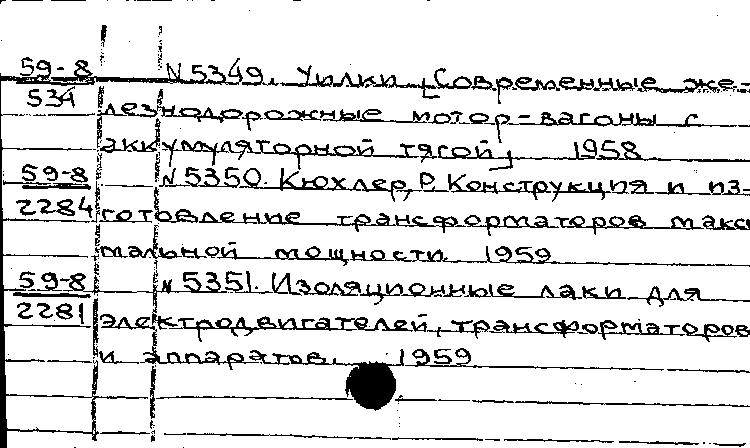 59-8 N 5349. Уилки [Современные же-
534 лезнодорожные мотор-вагоны с
аккумуляторной тягой] 1958
59-8 N 5350. Кюхлер, Р. Конструкция и из-
2284 готовление трансформаторов макси
мальной мощности 1959
59-8 N 5351. Изоляционные лаки для
2281 электродвигателей, трансформаторов
и аппаратов. 1959